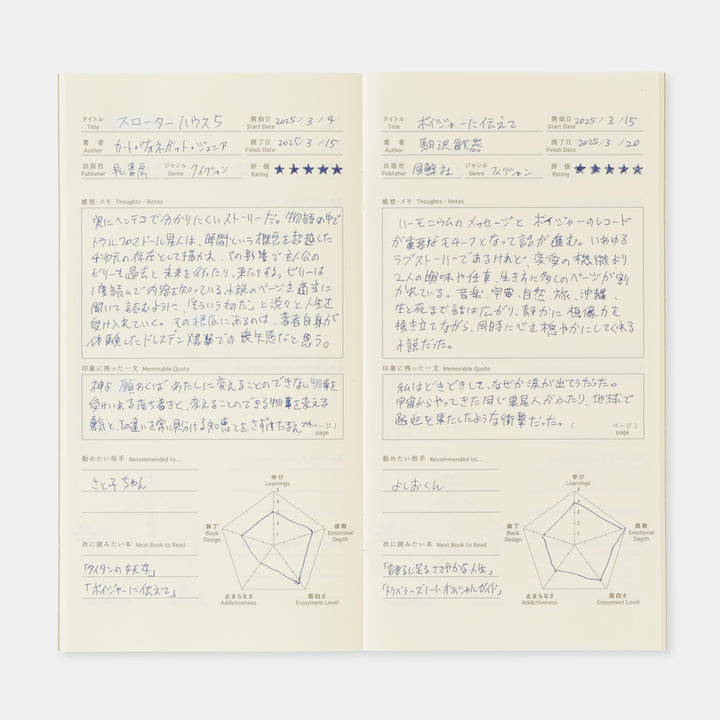 タイトル Title スローターハウス5 開始日 Start Date 2025/3/4
著者 Author カート・ヴォネガット・ジュニア 読了日 Finish Date 2025/3/15
出版社 Publisher 早川書房 ジャンル Genre フィクション 評価 Rating ★★★★★
感想・メモ Thoughts・Notes
実にヘンテコで分かりにくいストーリーだ。物語の中で
トラルファマドール星人は、時間という概念を超越した
4次元の存在として描かれ、その影響で主人公の
ビリーも過去と未来を行ったり、来たりする。ビリーは
1度読んで内容を知っている小説のページを適当に
開いて読むように、「そういうものだ」と淡々と人生を
受け入れていく。その根底にあるのは、著者自身が
体験したドレスデン爆撃での喪失感だと思う。
印象に残った一文 Memorable Quote
神よ 願わくばあたしに変えることのできない物事を
受けいれる落ち着きと、変えることのできる物事を変える
勇気と、その違いを常に見分ける知恵とをさずけたまえ
ページ page
勧めたい相手 Recommended to...
さと子ちゃん
次に読みたい本 Next Book to Read
「タイタンの妖女」
「ボイジャーに伝えて」
学び Learnings
5
4
3
2
1
感動 Emotional Depth
面白さ Enjoyment Level
止まらなさ Addictiveness
装丁 Book Design
タイトル Title ボイジャーに伝えて 開始日 Start Date 2025/3/15
著者 Author 駒沢敏器 読了日 Finish Date 2025/3/20
出版社 Publisher 風鯨社 ジャンル Genre フィクション 評価 Rating ★★★★★
感想・メモ Thoughts・Notes
ハーモニウムのメッセージと ボイジャーのレコード
が重要なモチーフとなって話が進む。いわゆる
ラブストーリーであるけれど、恋愛の機微より
2人の興味や仕事、生き方に多くのページが割
かれている。音楽、宇宙、自然、旅、沖縄、
生と死まで話は広がり、静かに想像力を
掻き立てながら、同時に心を穏やかにしてくれる
小説だった。
印象に残った一文 Memorable Quote
私はどきどきして、なぜか涙が出そうだった。
宇宙からやってきた同じ異星人がふたり、地球で
邂逅を果たしたような衝撃だった。
( ページ ) page
勧めたい相手 Recommended to...
よしおくん
次に読みたい本 Next Book to Read
「語るに足る ささやかな人生」
「トラベラーズノート オフィシャルガイド」
学び Learnings
5
4
3
2
1
感動 Emotional Depth
面白さ Enjoyment Level
止まらなさ Addictiveness
装丁 Book Design